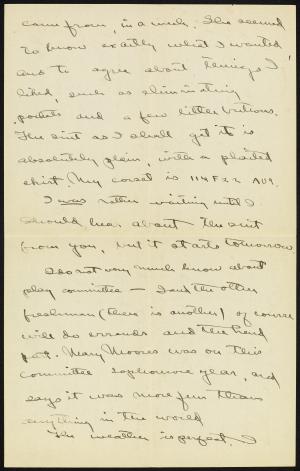 come from, in a week. She seemed
to know exactly what I wanted
and to agree about things I
liked, such as eliminating
pockets and a few little buttons.
The suit as I shall get it is
absolutely plain, with a plaited
skirt. My corset is 114F22 A09.
I was rather waiting until I
should hear about the suit
from you, but it starts tomorrow.
I do not very much know about
play committee — I and the other
freshman (there is another) of course
will do errands and the
part. Mary Moores was on this
committee sophomore year, and
says it was more fun than
anything in the world
The weather is perfect. I